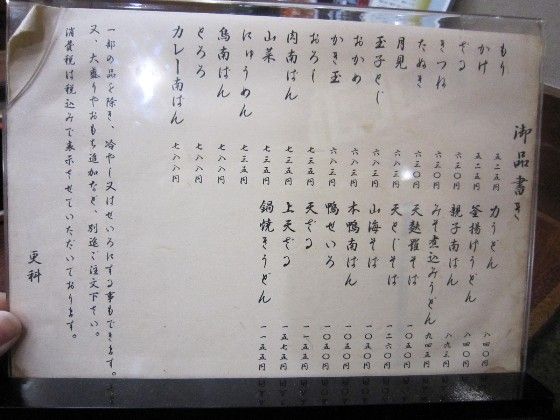 御品書き
もり 五二五円
かけ 五二五円
ざる 六三〇円
きつね 六三〇円
たぬき 六三〇円
月見 六八三円
玉子とじ 六八三円
おかめ 六八三円
かき玉 六八三円
おろし 七三五円
肉南ばん 七三五円
山菜 七三五円
にゅうめん 七三五円
鳥南ばん 七八八円
とろろ 七八八円
カレー南ばん 七八八円
力うどん 八四〇円
釜揚げうどん 八四〇円
親子南ばん 八九三円
みそ煮込みうどん 九四五円
天麩羅そば 一〇五〇円
天とじそば 一二六〇円
山海そば 一〇五〇円
木鴨南ばん 一〇五〇円
鴨せいろ 一〇五〇円
天ざる 一一五五円
上天ざる 一五七五円
鍋焼きうどん 一一五五円
一部の品を除き、冷やし又はせいろにする事もできます。
又、大盛りやおもち追加など、別途ご注文下さい。
消費税は税込みで表示させていただいております。
更科